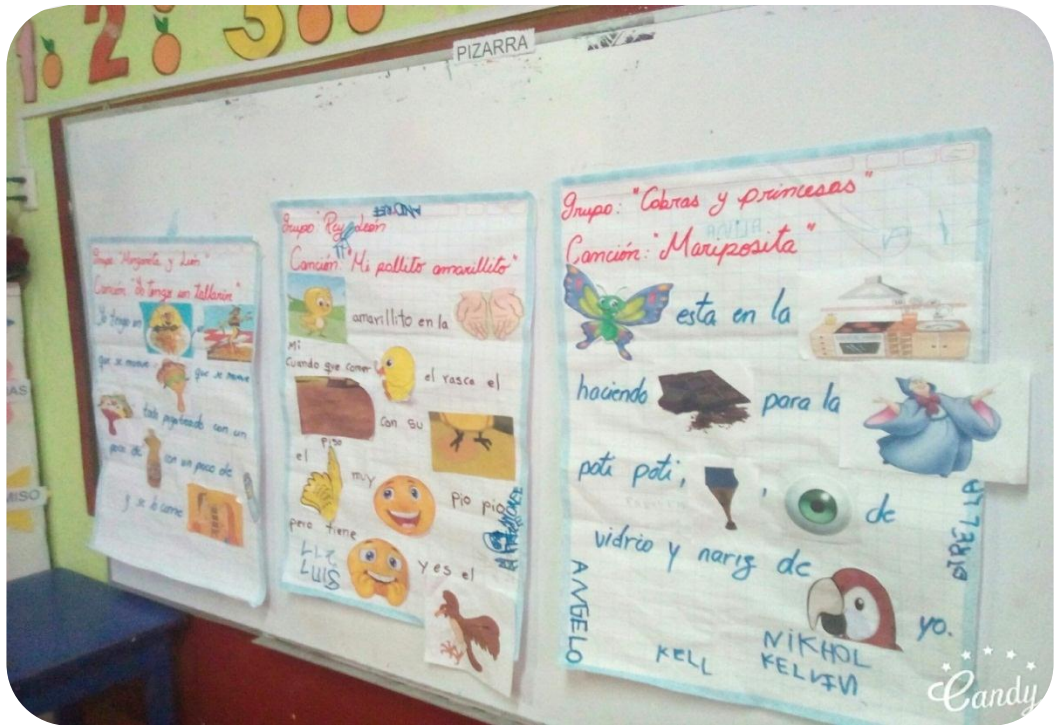 1 2 3
PIZARRA
Grupo: "Margarita y León"
Canción: "Yo tengo un tallarín"
Yo tengo un
que se mueve que se mueve
todo pegoteado con un
poco de con un poco de
y se lo come
ANDREE
Grupo "Rey León
Canción: "Mi pollito amarillito"
amarillito en la
Mi
Cuando que comer el rasca el
piso
con su
el muy pio pio
pero tiene
yes el
Grupo: "Cobras y princesas"
Canción: "Mariposita"
esta en la
haciendo para la
poti poti, , de
vidrio y nariz de
yo.
ANGELO
KELL
NIKHOL
KELVIN
MISO
Candy